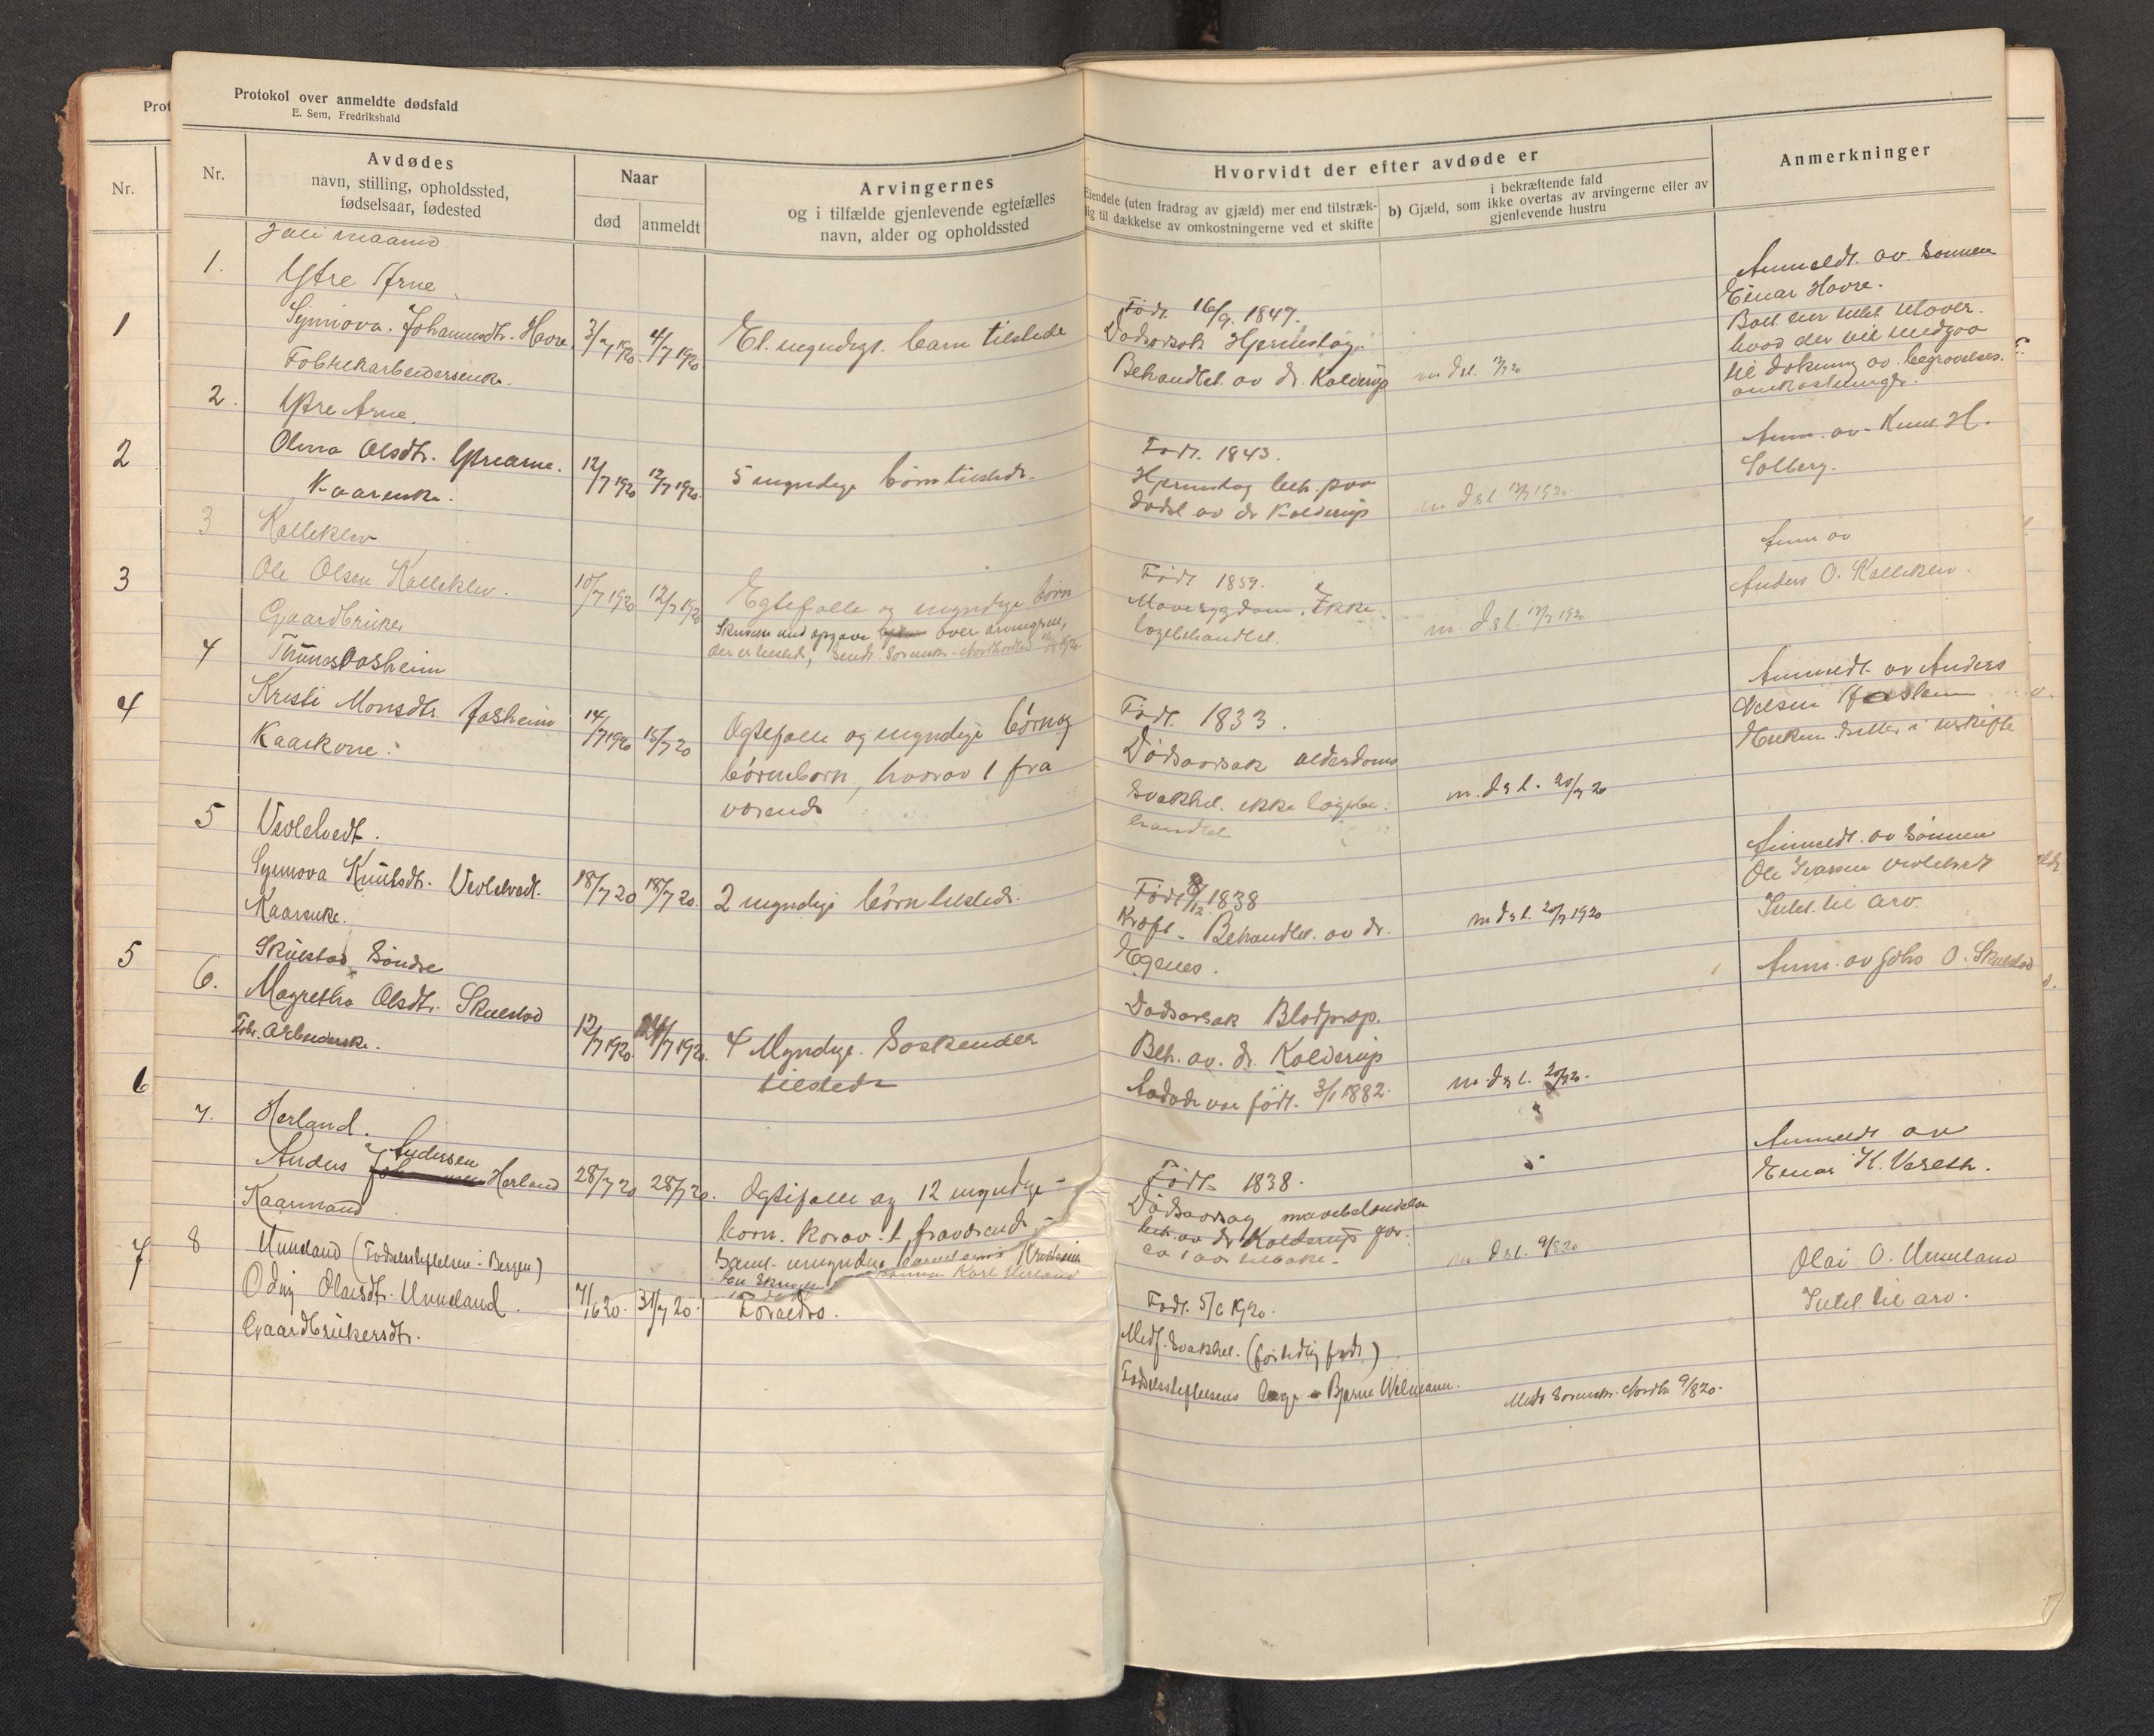 Protokol over anmeldte dødsfald
E. Sem, Fredrikshald
Prot
Nr.
Nr.
Avdødes
navn, stilling, opholdssted,
fødselsaar, fødested
Naar
død
anmeldt
Arvingernes
og i tilfælde gjenlevende egtefælles
navn, alder og opholdssted
Hvorvidt der efter avdøde er
Eiendele (uten fradrag av gjæld) mer end tilstræk-
lig til dækkelse av omkostningerne ved et skifte
i bekræftende fald
b) Gjæld, som ikke overtas av arvingerne eller av
gjenlevende hustru
Anmerkninger
Juli maaned
1.
Ytre Arne
1
Synnova Johannesdtr. Havre
Fabrikarbeiderenke.
3/7 1920
4/7 1920
Et myndigt barn tilstede
Født 16/9 1847.
Dødsorsak Hjerneslag.
Behandlet av dr. Kolderup
m dsl. 7/20
Anmeldt av Sønnen
Einar Havre.
hvad der vil medgaa
til dækning av begravelses-
omkostninger.
2.
Ytre Arne.
2
Olina Olsdtr. Ytrearne.
Kaarenke.
12/7 1920
12/7 1920.
5 myndige børn tilstede.
Født. 1843.
Hjerneslag beh. paa
dødsl av dr Kolderup
m dsl. 12/7 1920.
Anm. av Knut H.
Solberg.
3
Kalleklev
3
Ole Olsen Kalleklev.
Gaardbruker
10/7 1920
12/7 1920
Egtefælle og myndige børn
Skrivelse med opgave over arvingerne,
der er tilstede, sendt Sorenskr. Nordhordland
Født 1859.
Mavesygdom. Ikke
lægebehandlet.
m. dsl. 12/7 1920
Anm av
Anders O. Kalleklev.
4
4
Kristi Monsdtr. Jasheim
Kaarkone.
14/7 1920
15/7 20
Ægtefælle og myndige børn og
børneborn, hvorav 1 fra
værende
Født. 1833.
Dødsaarsak alderdoms
svakhet. ikke lægebe.
handlet
m. dsl. 20/7 20
Anmeldt av Anders
5
Vevletvedt.
Synnova Knutsdtr. Vevletvedt.
Kaarenke.
18/7 20
18/7 20.
2 myndige børn tilstede.
Født 8/12 1838
Kræft. Behandlet av dr.
Egenes.
m dsl. 20/7 1920
Anmeldt av Sønnen
Ole Ivarsen Vevletvedt
Intet til arv.
5
Skulstad Søndre
6.
Magretha Olsdtr. Skulstad
Fbr. Arbeiderske.
12/7 1920.
4 Myndige. Søskender
tilstede
Dødsorsak Blodprop.
Beh. av. dr. Kolderup
Avdøde var født. 3/1 1882.
m. dsl. 20/7 20.
Anm. av Johs O. Skulstad
6
7.
Herland.
Andersen
Anders Herland
Kaarmand
28/7 20
28/7 20.
Ægtefælle og 12 myndige
børn. hvorav 1 fraværende
Samt umyndige
Født 1838.
Dødsaarsag mavebetændelse
beh. av dr Kolderup for
ca 1 aar tilbake.
m. dsl. 9/8 20
Anmeldt av
Einar K. Vereth.
7
8
Unneland (Fødselsstiftelsen i Bergen)
Odny Olaisdtr. Unneland.
Gaardbrukersdtr.
7/6 20.
31/7 20.
Forældre.
Født. 5/6 1920.
Medf. Svakhet. (for tidlig født)
Fødselsstiftelsens læge Bjarne Welmann.
Medd Sorenskr. Nordh 9/8 20.
Olai O. Unneland
Intet til arv.